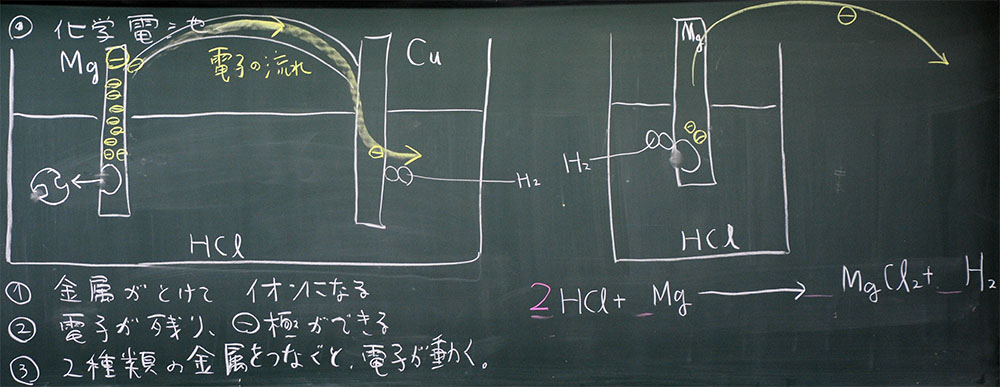 ◎ 化学電池
Mg
電子の流れ
Cu
H₂
HCl
Mg
H₂
HCl
① 金属がとけて イオンになる
② 電子が残り、⊖極ができる
③ 2種類の金属をつなぐと、電子が動く。
2HCl + _Mg → _MgCl₂ + _H₂